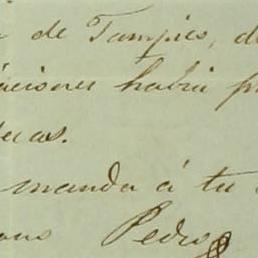 de Tampico, de
aciones habia p
ecas.
manda á tu
Pedro